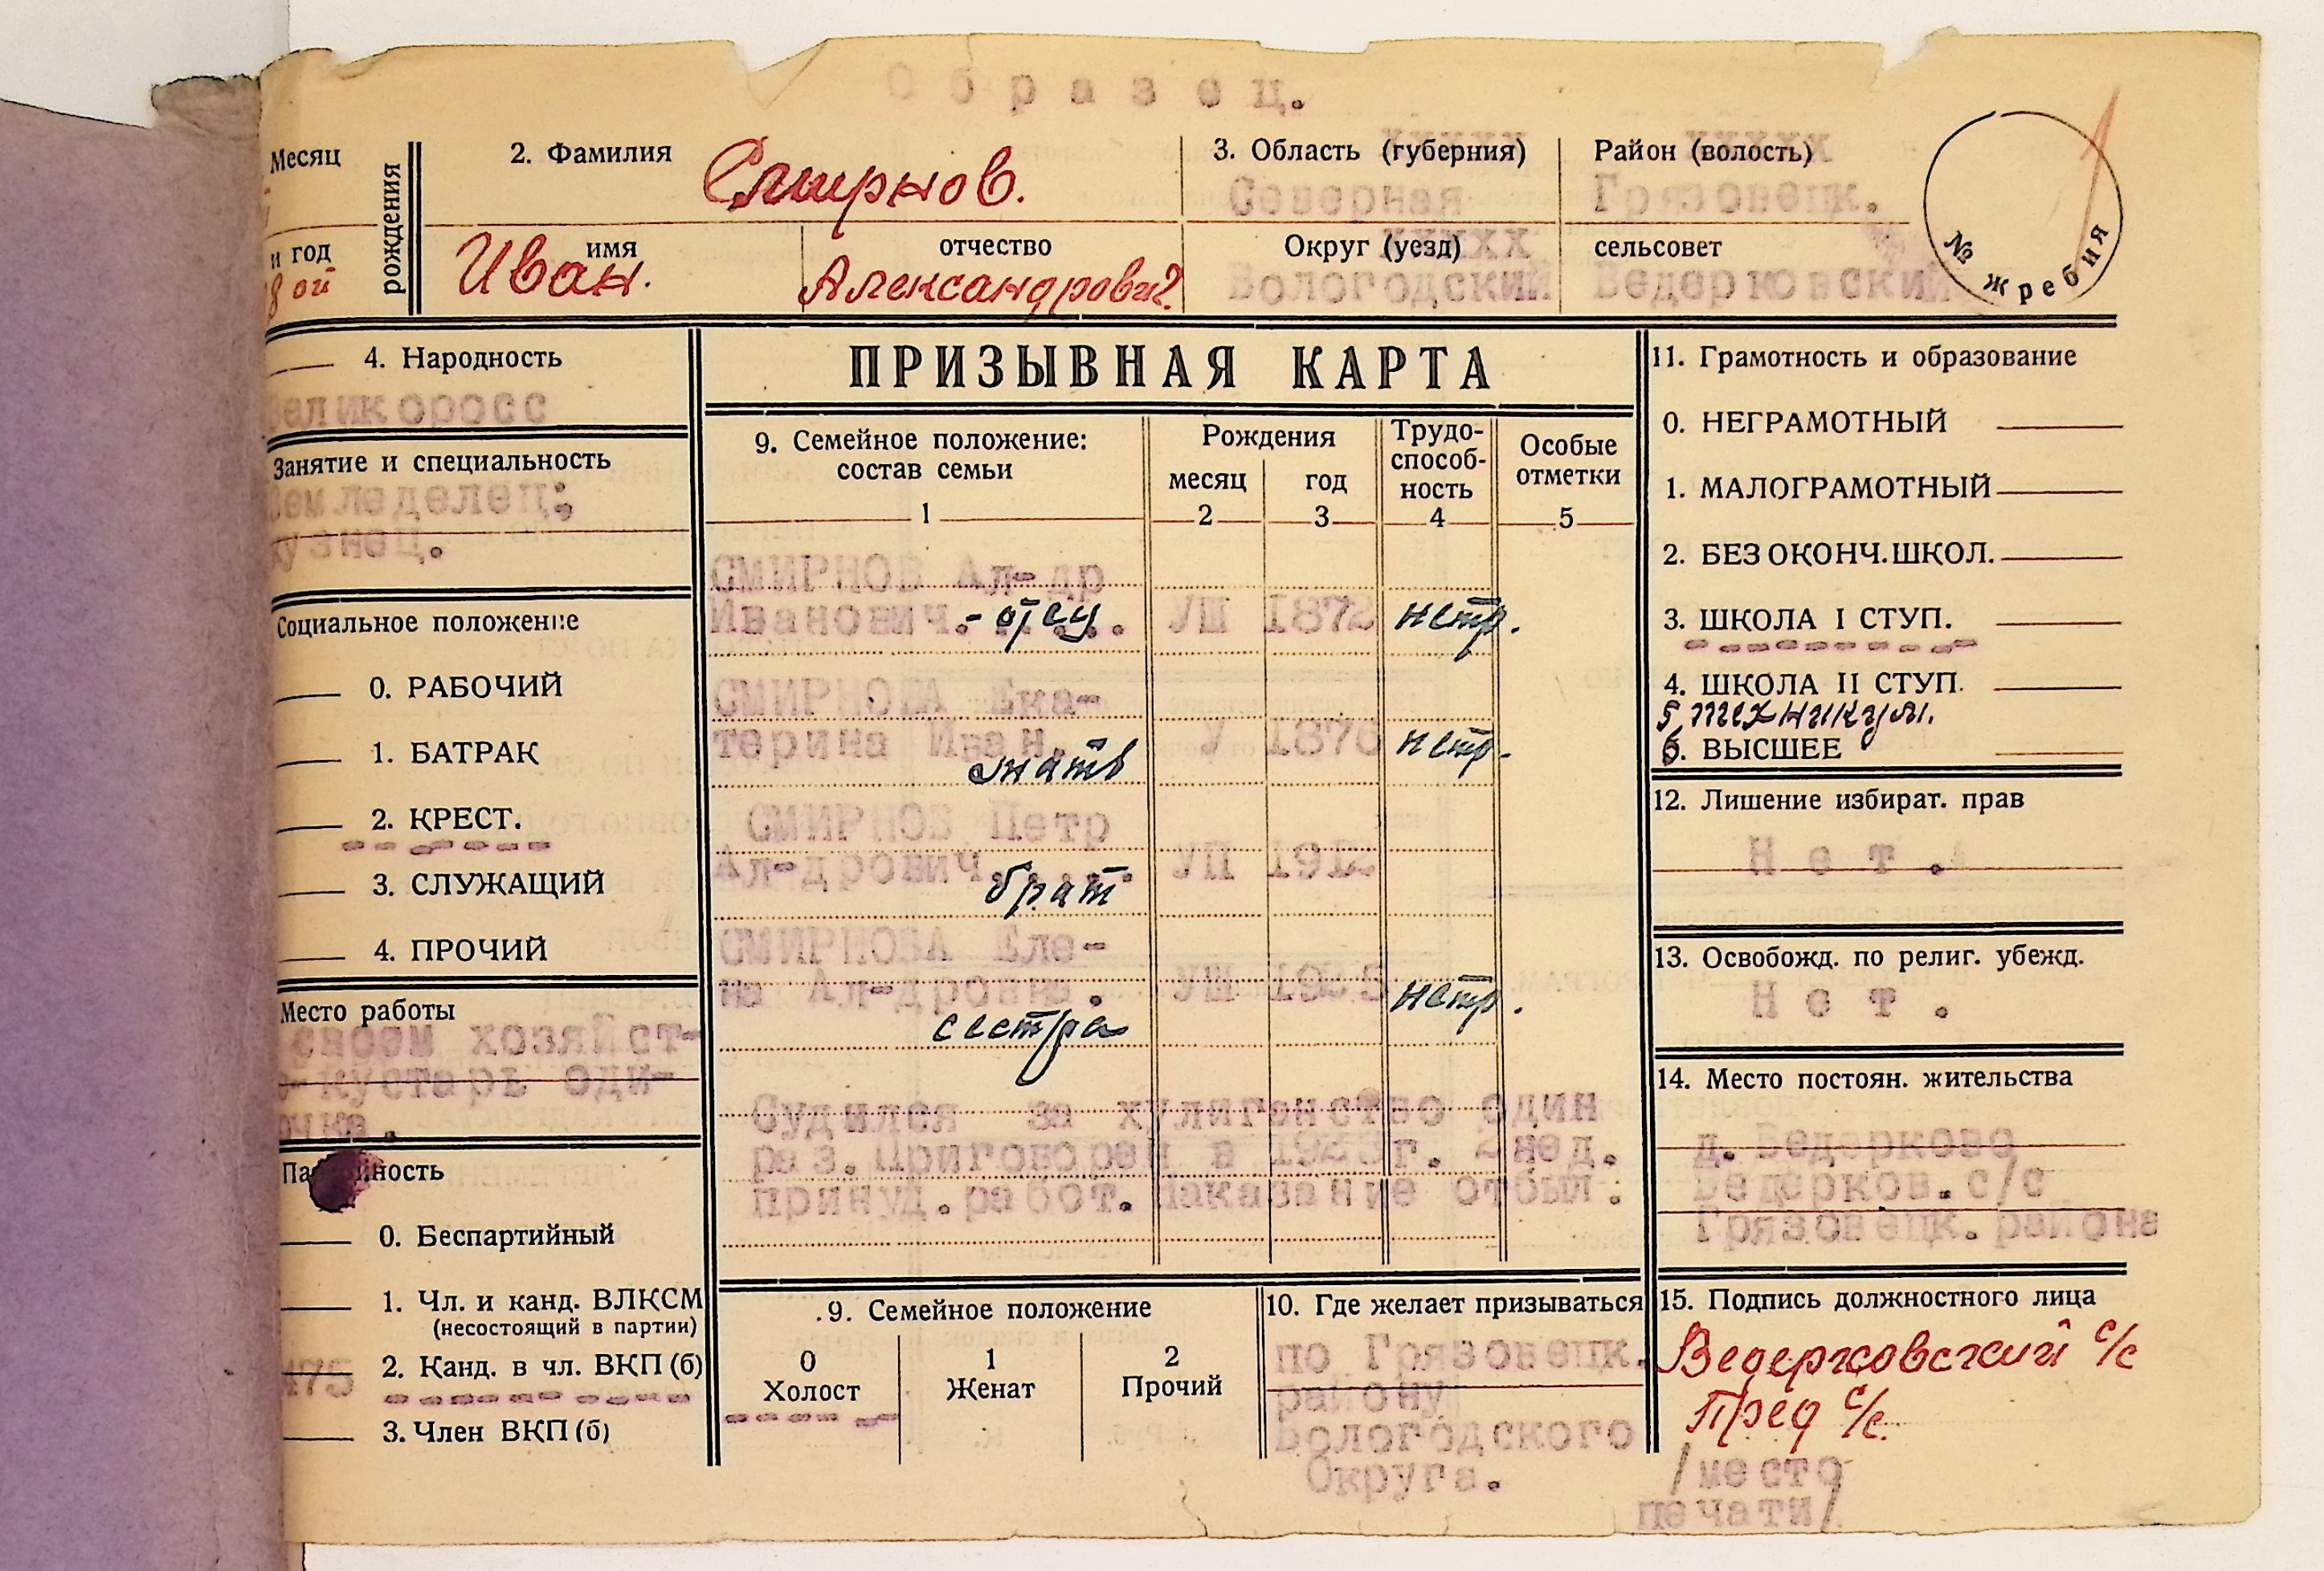 Образец.
Месяц
рождения
и год
8 ой
2. Фамилия Смирнов.
имя Иван.
отчество Александрович
3. Область (губерния) ххххх
Северная
Район (волость) ххххх
Грязовецк.
Округ (уезд) ххххх
Вологодский
сельсовет
Ведерковский
№ жребия
1
4. Народность
великоросс
Занятие и специальность
Земледелец;
кузнец.
Социальное положение
0. РАБОЧИЙ
1. БАТРАК
2. КРЕСТ.
3. СЛУЖАЩИЙ
4. ПРОЧИЙ
Место работы
своем хозяйст-
-кустарь оди-
очка.
Па йность
0. Беспартийный
1. Чл. и канд. ВЛКСМ
(несостоящий в партии)
2. Канд. в чл. ВКП(б)
475
3. Член ВКП(б)
ПРИЗЫВНАЯ КАРТА
9. Семейное положение:
состав семьи
Рождения
месяц год
Трудо-
способ-
ность
Особые
отметки
1 2 3 4 5
СМИРНОВ Ал-др
Иванович.- отец УШ 1872 нетр.
СМИРНОВА Ека-
терина Иван. У 1876 нетр.
мать
СМИРНОВ Петр
Ал-дрович. УП 1912
брат
СМИРНОВА Еле-
на Ал-дровна. УШ нетр.
сестра
Судился за хулиганство один
раз. Приговорен в г. 2 нед.
принуд.работ. Наказание отбыл.
.9. Семейное положение
0 1 2
Холост Женат Прочий
10. Где желает призываться
по Грязовецк.
району
Вологодского
Округа.
11. Грамотность и образование
0. НЕГРАМОТНЫЙ
1. МАЛОГРАМОТНЫЙ
2. БЕЗ ОКОНЧ. ШКОЛ.
3. ШКОЛА I СТУП.
4. ШКОЛА II СТУП.
5, техникум.
6. ВЫСШЕЕ
12. Лишение избират. прав
Нет.
13. Освобожд. по религ. убежд.
Нет.
14. Место постоян. жительства
д. Ведерково
Ведерков. с/с
Грязовецк. района
15. Подпись должностного лица
Ведерковский с/с
Пред с/с.
/место
печати/